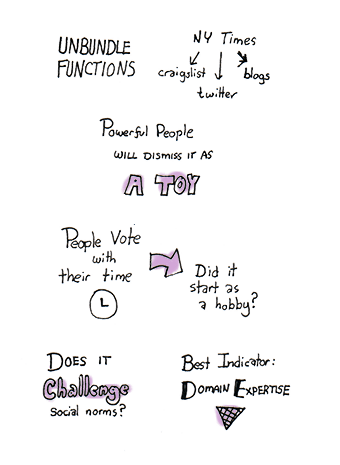 UNBUNDLE
FUNCTIONS
NY Times
craigslist
twitter
blogs
Powerful People
WILL DISMISS IT AS
A TOY
People Vote
with
their time
Did it
start as
a hobby?
DOES IT
Challenge
Social norms?
Best Indicator:
DOMAIN EXPERTISE